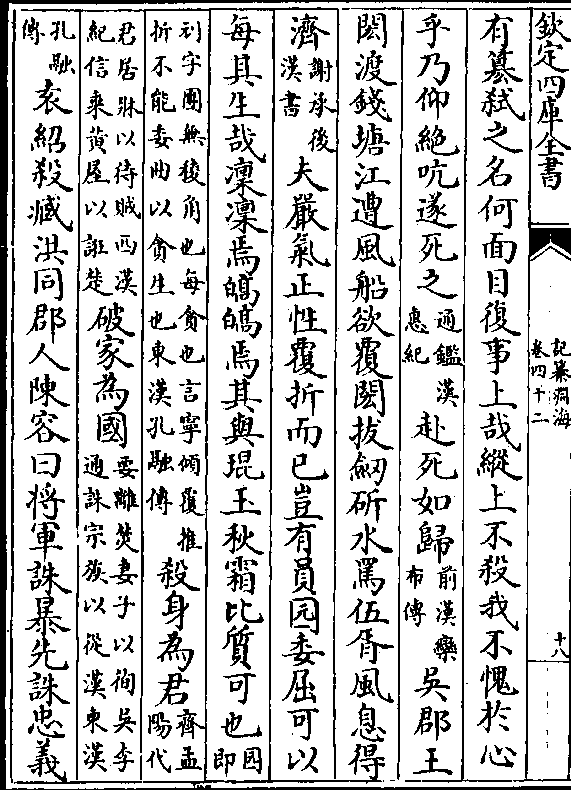 欽定四庫全書
記纂淵海
卷四十二
十八
有簒弑之名何面目復事上哉縱上不殺我不愧於心
乎乃仰絶吭遂死之
通鑑漢
惠紀
赴死如歸
前漢欒
布傳
吳郡王
閎渡錢塘江遭風船欲覆閎拔劒斫水罵伍胥風息得
濟
謝承後
漢書
夫嚴氣正性覆折而已豈有員园委屈可以
每其生哉凜凜焉皜皜焉其與琨玉秋霜比質可也
园
即
刓字團無稜角也每貪也言寧傾覆摧
折不能委曲以貪生也東漢孔融傳
殺身為君
齊孟
陽代
君居牀以待賊西漢
紀信乘黄屋以誑楚
破家為國
要離焚妻子以徇吳李
通誅宗族以從漢東漢
孔融
傳
袁紹殺臧洪同郡人陳容曰将軍誅暴先誅忠義